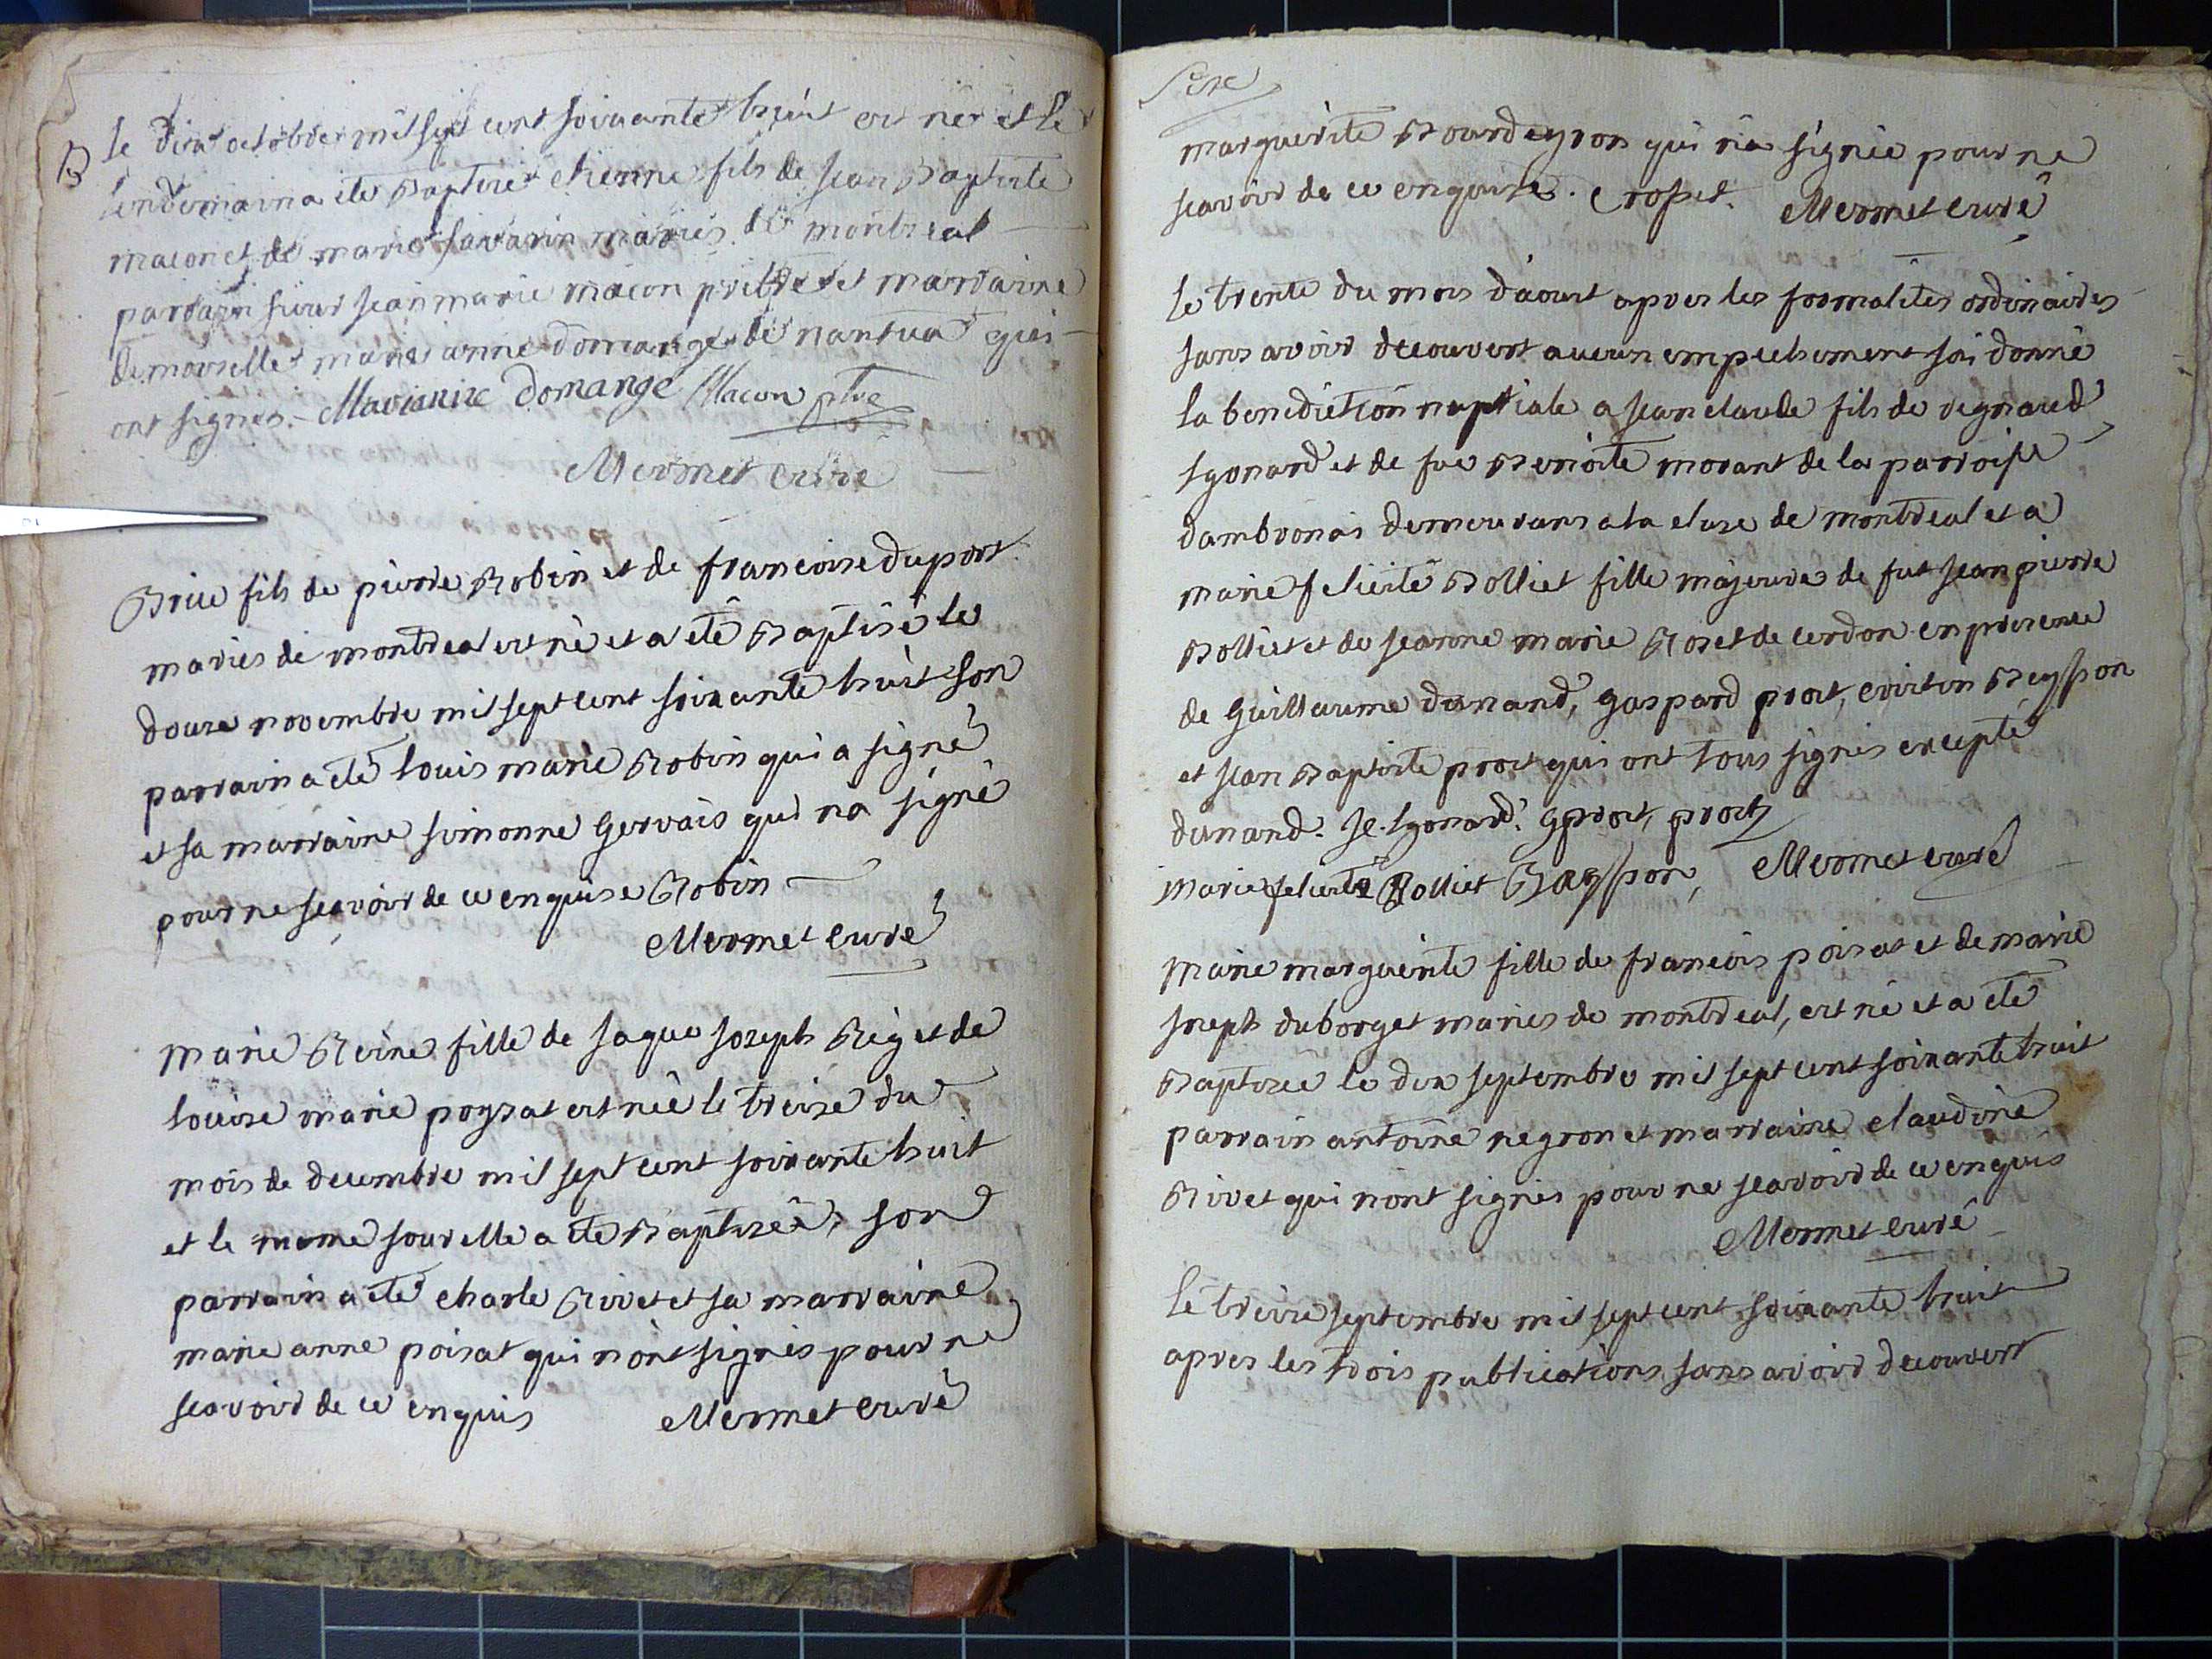 B
le dix octobre mil sept cent soixante huit est né et le
lendemain a été Baptisé etienne fils de jean Baptiste
macon et de marie savarin mariés de montreal
parrain sieur jean marie macon prêtre et marraine
demoiselle marie anne domange de nantua qui
ont signés. Marianne Domange Macon ptre
Mermet curé
Brice fils de pierre Robin et de francoise duport
mariés de montreal est né et a été Baptisé le
douze novembre mil sept cent soixante huit son
parrain a été louis marie Robin qui a signé
et sa marraine simonne Gervais qui na signé
pour ne scavoir de ce enquise Robin
Mermet curé
marie Reine fille de jaque joseph Rey et de
louise marie poysat est née le treize du
mois de decembre mil sept cent soixante huit
et le meme jour elle a été Baptisée, son
parrain a été charle Rivet et sa marraine
marie anne poisat qui n'ont signés pour ne
scavoir de ce enquis Mermet curé
marguerite Bourdeyron qui n'a signée pour ne
scavoir de ce enquise. Mermet curé
le trente du mois d'aoust apres les formalités ordinaires
sans avoir decouvert aucun empechement jai donné
la benediction nuptiale a jean claude fils de regnaud
Lgonard et de fue Benoite morant de la parroisse
dambronai demeurans a la cluse de montreal et a
marie felicité Bolliet fille majeure de fut jean pierre
Bolliet et de jeanne marie Roset de cerdon en presence
de Guillaume dunand, gaspard prost, Beysson
et jean Baptiste prost qui ont tous signés excepté
dunand. prost, prost
marie felicité Bolliet Beysson, Mermet curé
marie marguerite fille de francois poisat et de marie
joseph duborget mariés de montreal, est né et a été
Baptisée le dix septembre mil sept cent soixante huit
parrain antoine negron et marraine claudine
Rivet qui n'ont signés pour ne scavoir de ce enquis
Mermet curé
le treize septembre mil sept cent soixante huit
apres les trois publications sans avoir decouvert